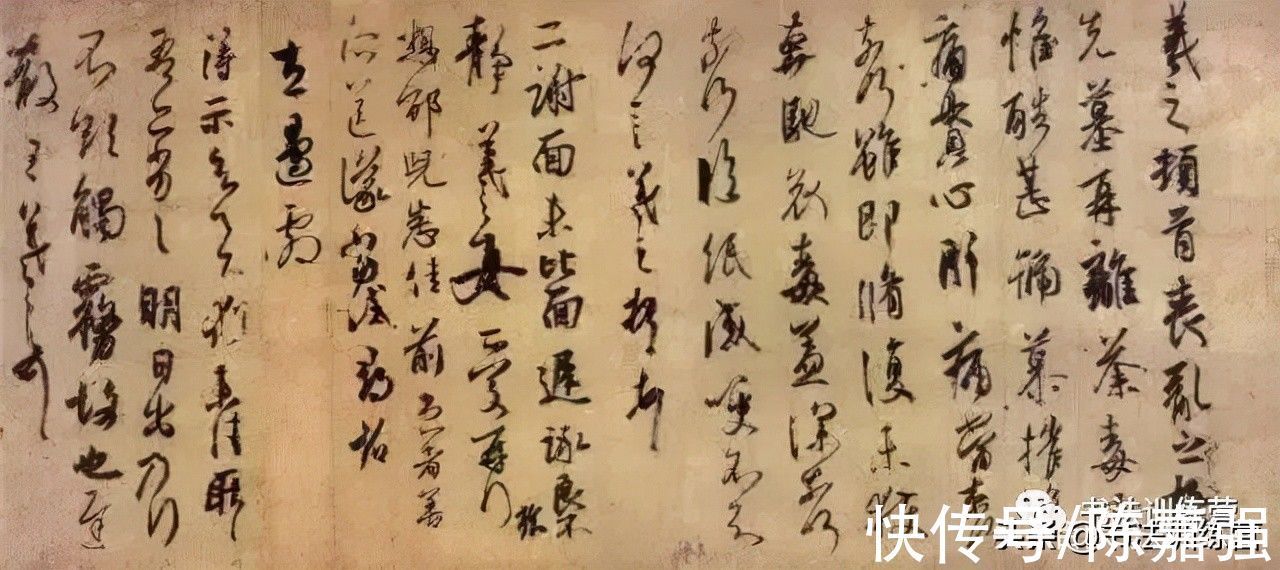 羲之頓首喪亂之極
先墓再離荼毒
惟酷甚號慕摧
痛貫心肝痛當奈何
奈何雖即脩復未獲
奔馳哀毒益深奈何
奈何臨紙感哽不知
何言羲之頓首頓首
二謝面未比面遲詠良不
靜羲之女愛再拜
想邵兒悉佳前患者善
所送議當試尋省
左邊劇
得示知足下猶未佳耿耿
吾亦劣劣明日出乃行
不欲觸霧故也遲
散王羲之頓首
书法训练营
快传号/陈嘉强